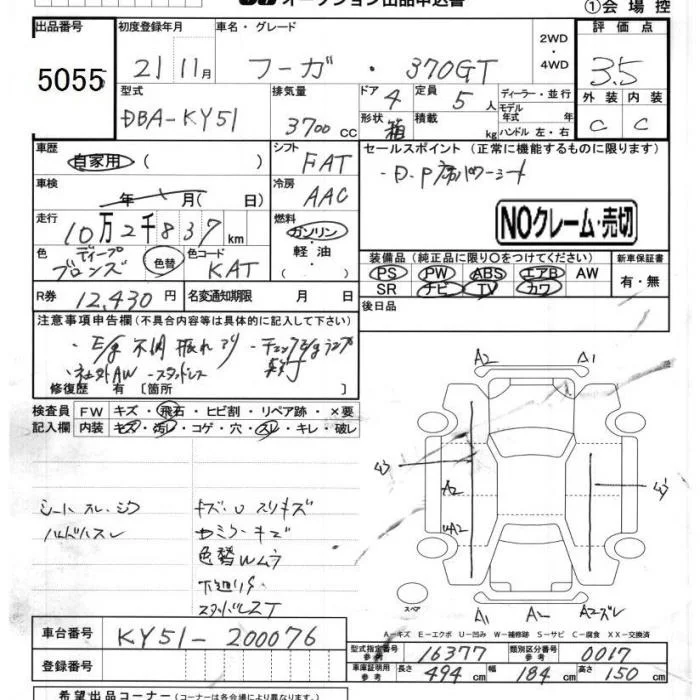 オークション出品申込書
①会場控
出品番号
5055
初度登録年月
21年11月
車名・グレード
フーガ・370GT
2WD
・
4WD
評価点
3.5
外装 内装
C C
型式
DBA-KY51
排気量
3700CC
ドア 4
形状 箱
定員 5人
積載 kg
ディーラー・並行
モデル年式 年
ハンドル 左・右
車歴
自家用 ( )
シフト
FAT
セールスポイント (正常に機能するものに限ります)
・D.P席パワーシート
車検
年 月( 日)
冷房
AAC
NOクレーム・売切
走行
10万2千837km
燃料
ガソリン
・軽油・
( )
色
ディープブロンズ
色替
色コード
KAT
装備品(純正品に限り○をつけてください)
PS PW ABS エアB AW
SR ナビ TV カワ
新車保証書
有・無
R券 12,430円
名変通知期限 月 日
後日品
注意事項申告欄(不具合内容等は具体的に記入して下さい)
・E/g不調 振れあり ・チェックE/gランプ点灯
・社外AW ・スタッドレス
修復歴 有 〔箇所 〕
検査員記入欄
FW キズ・飛石・ヒビ割・リペア跡・×要
内装 キズ・汚レ・コゲ・穴・スレ・キレ・破レ
シートスレ・シワ
ハンドルスレ
キズ・Uスリキズ
色替Wムラ
下廻りサビ
A2 A1
ムラ
A2
UA2
ムラ
スペア
A1 A2ズレ
A-キズ E-エクボ U-凹み W-補修跡 S-サビ C-腐食 XX-交換済
車台番号
KY51-200076
登録番号
型式指定番号 参考 16377
類別区分番号 参考 0017
車庫証明用 参考 長さ 494cm 幅 184cm 高さ 150cm
希望出品コーナー(コーナーは各会場により異なります)